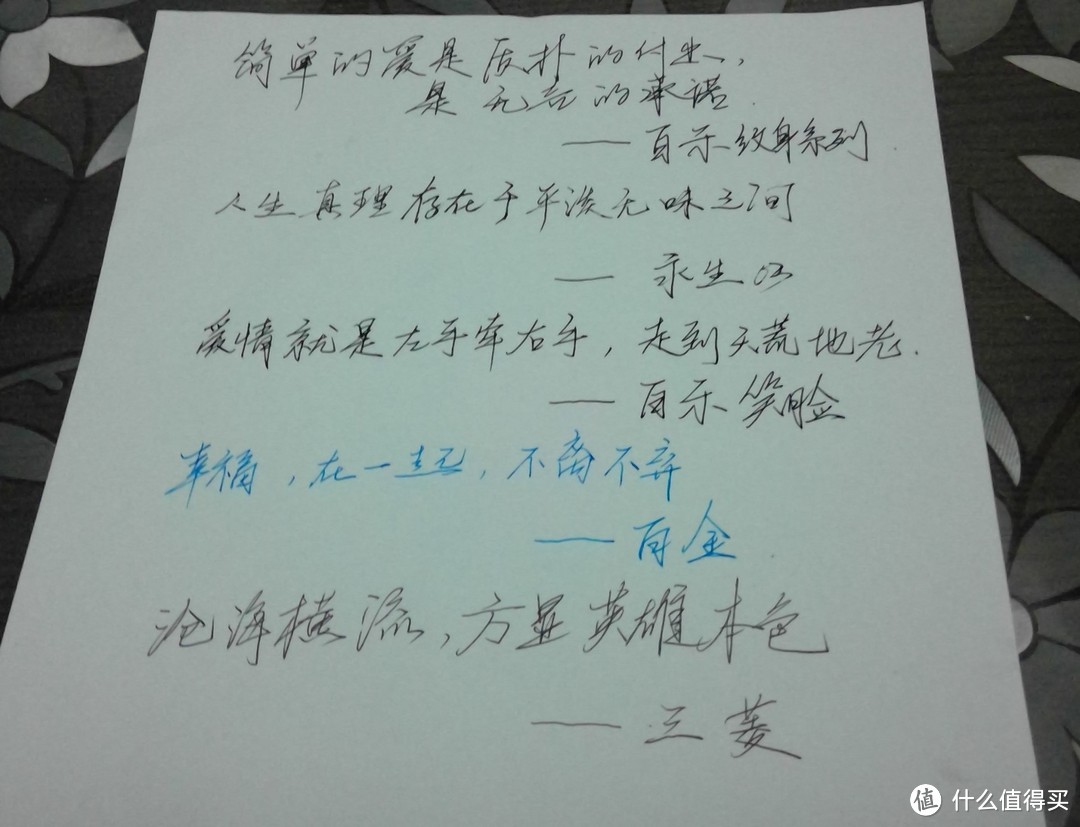 简单的爱是反朴的付出,
是无言的承诺.
——百乐纹身系列
人生真理存在于平淡无味之间
——永生03
爱情就是左手牵右手,走到天荒地老.
——百乐笑脸
幸福,在一起,不离不弃
——百金
沧海横流,方显英雄本色
——三菱
值 什么值得买